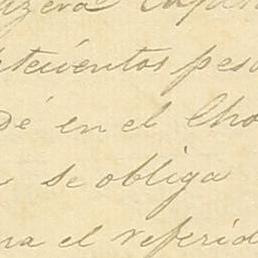 etecientos pes
dé en el Cho
se obliga
na el referid